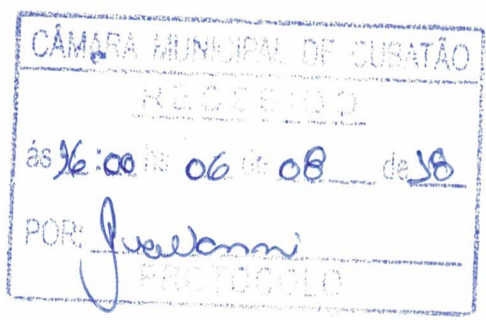 CÂMARA MUNICIPAL DE CUBATÃO
RECEBIDO
ás 16:00 hs 06 de 08 de 18
POR:
PROTOCOLO